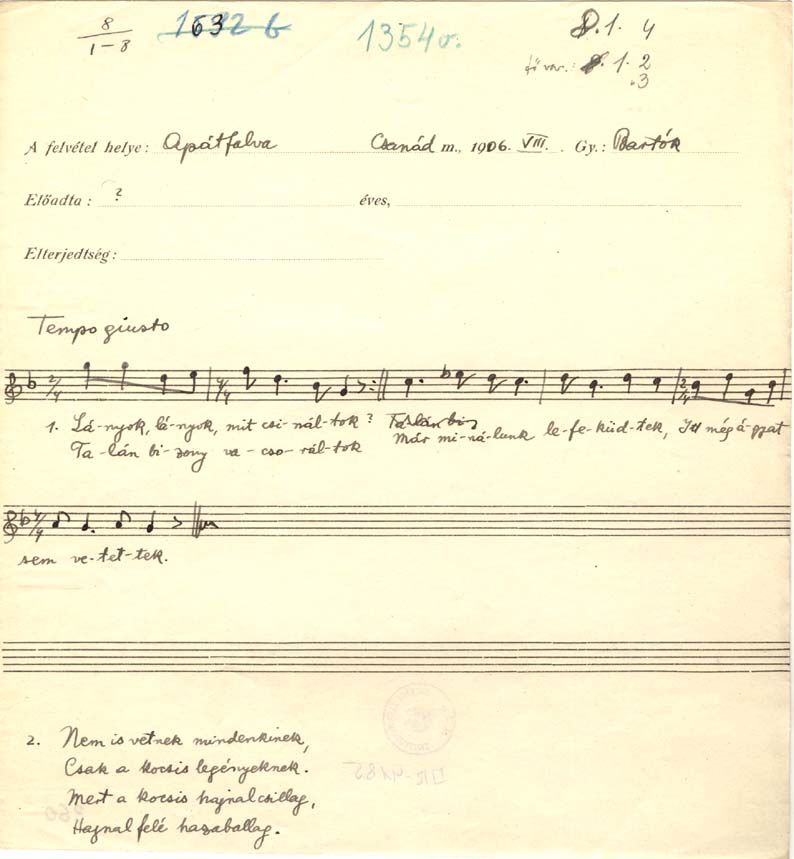 8
1-8
1632 b
63
1354 σ.
8. 1. 4
fő var.: 8. 1. 2
3
A felvétel helye: Apátfalva Csanád m., 1906. VIII. Gy.: Bartók
Előadta: ? éves,
Elterjedtség:
Tempo giusto
2/4 4/4 2/4
1. Lá-nyok, lá-nyok, mit csi-nál-tok? Talán biz
Ta-lán bi-zony va-cso-rál-tok Már mi-ná-lunk le-fe-küd-tek, Itt még á-gyat
4/4
sem ve-tet-tek.
2. Nem is vetnek mindenkinek,
Csak a kocsis legényeknek.
Mert a kocsis hajnalcsillag,
Hajnal felé hazaballag.